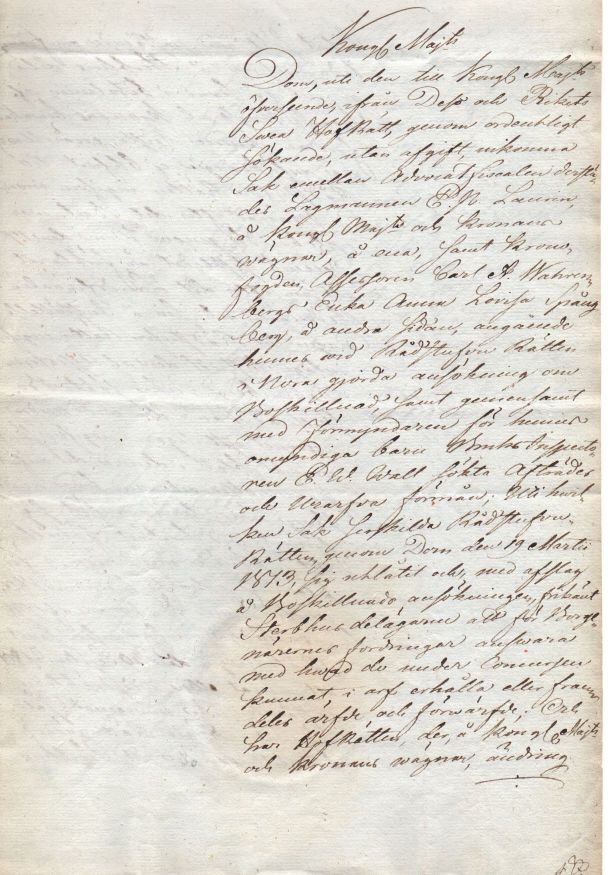 Kongl Majts
Dom, uti den till Kongl Majts
öfverseende, ifrån Dess och Rikets
Svea HofRätt, genom ordentligt
sökande, utan afgift inkomna
Sak emellan Advocatfiscalen
des Lagmannen P. N. Laurin
å Kongl Majts och Kronans
wägnar, å ena, samt Krono,
fogden, Assessoren Carl A. Wahren,
bergs Enka Anna Lovisa Spång
berg, å andra sidan, angående
hennes wid Rådstufvu Rätten
i Nora gjorda ansökning om
Boskillnad, samt gemensamt
med Förmyndaren för hennes
omyndiga barn Bruks Inspecto,
ren E. W. Wall sökta Afträdes
och Urarfva förmån; Uti hwil-
ken Sak Rådstufvu-
Rätten, genom Dom den 19 Martii
1813, sig utlåtit och, med afslag
å Boskillnads ansökningen, frikänt
Sterbhus delägarne att för Borge
närernes fordringar answara
med hwad de under Concursen
kunnat i arf erhålla eller fram
deles ärfde och förwärfde; Och
har HofRätten, der, å Kongl Majts
och Kronans wägnar, ändring